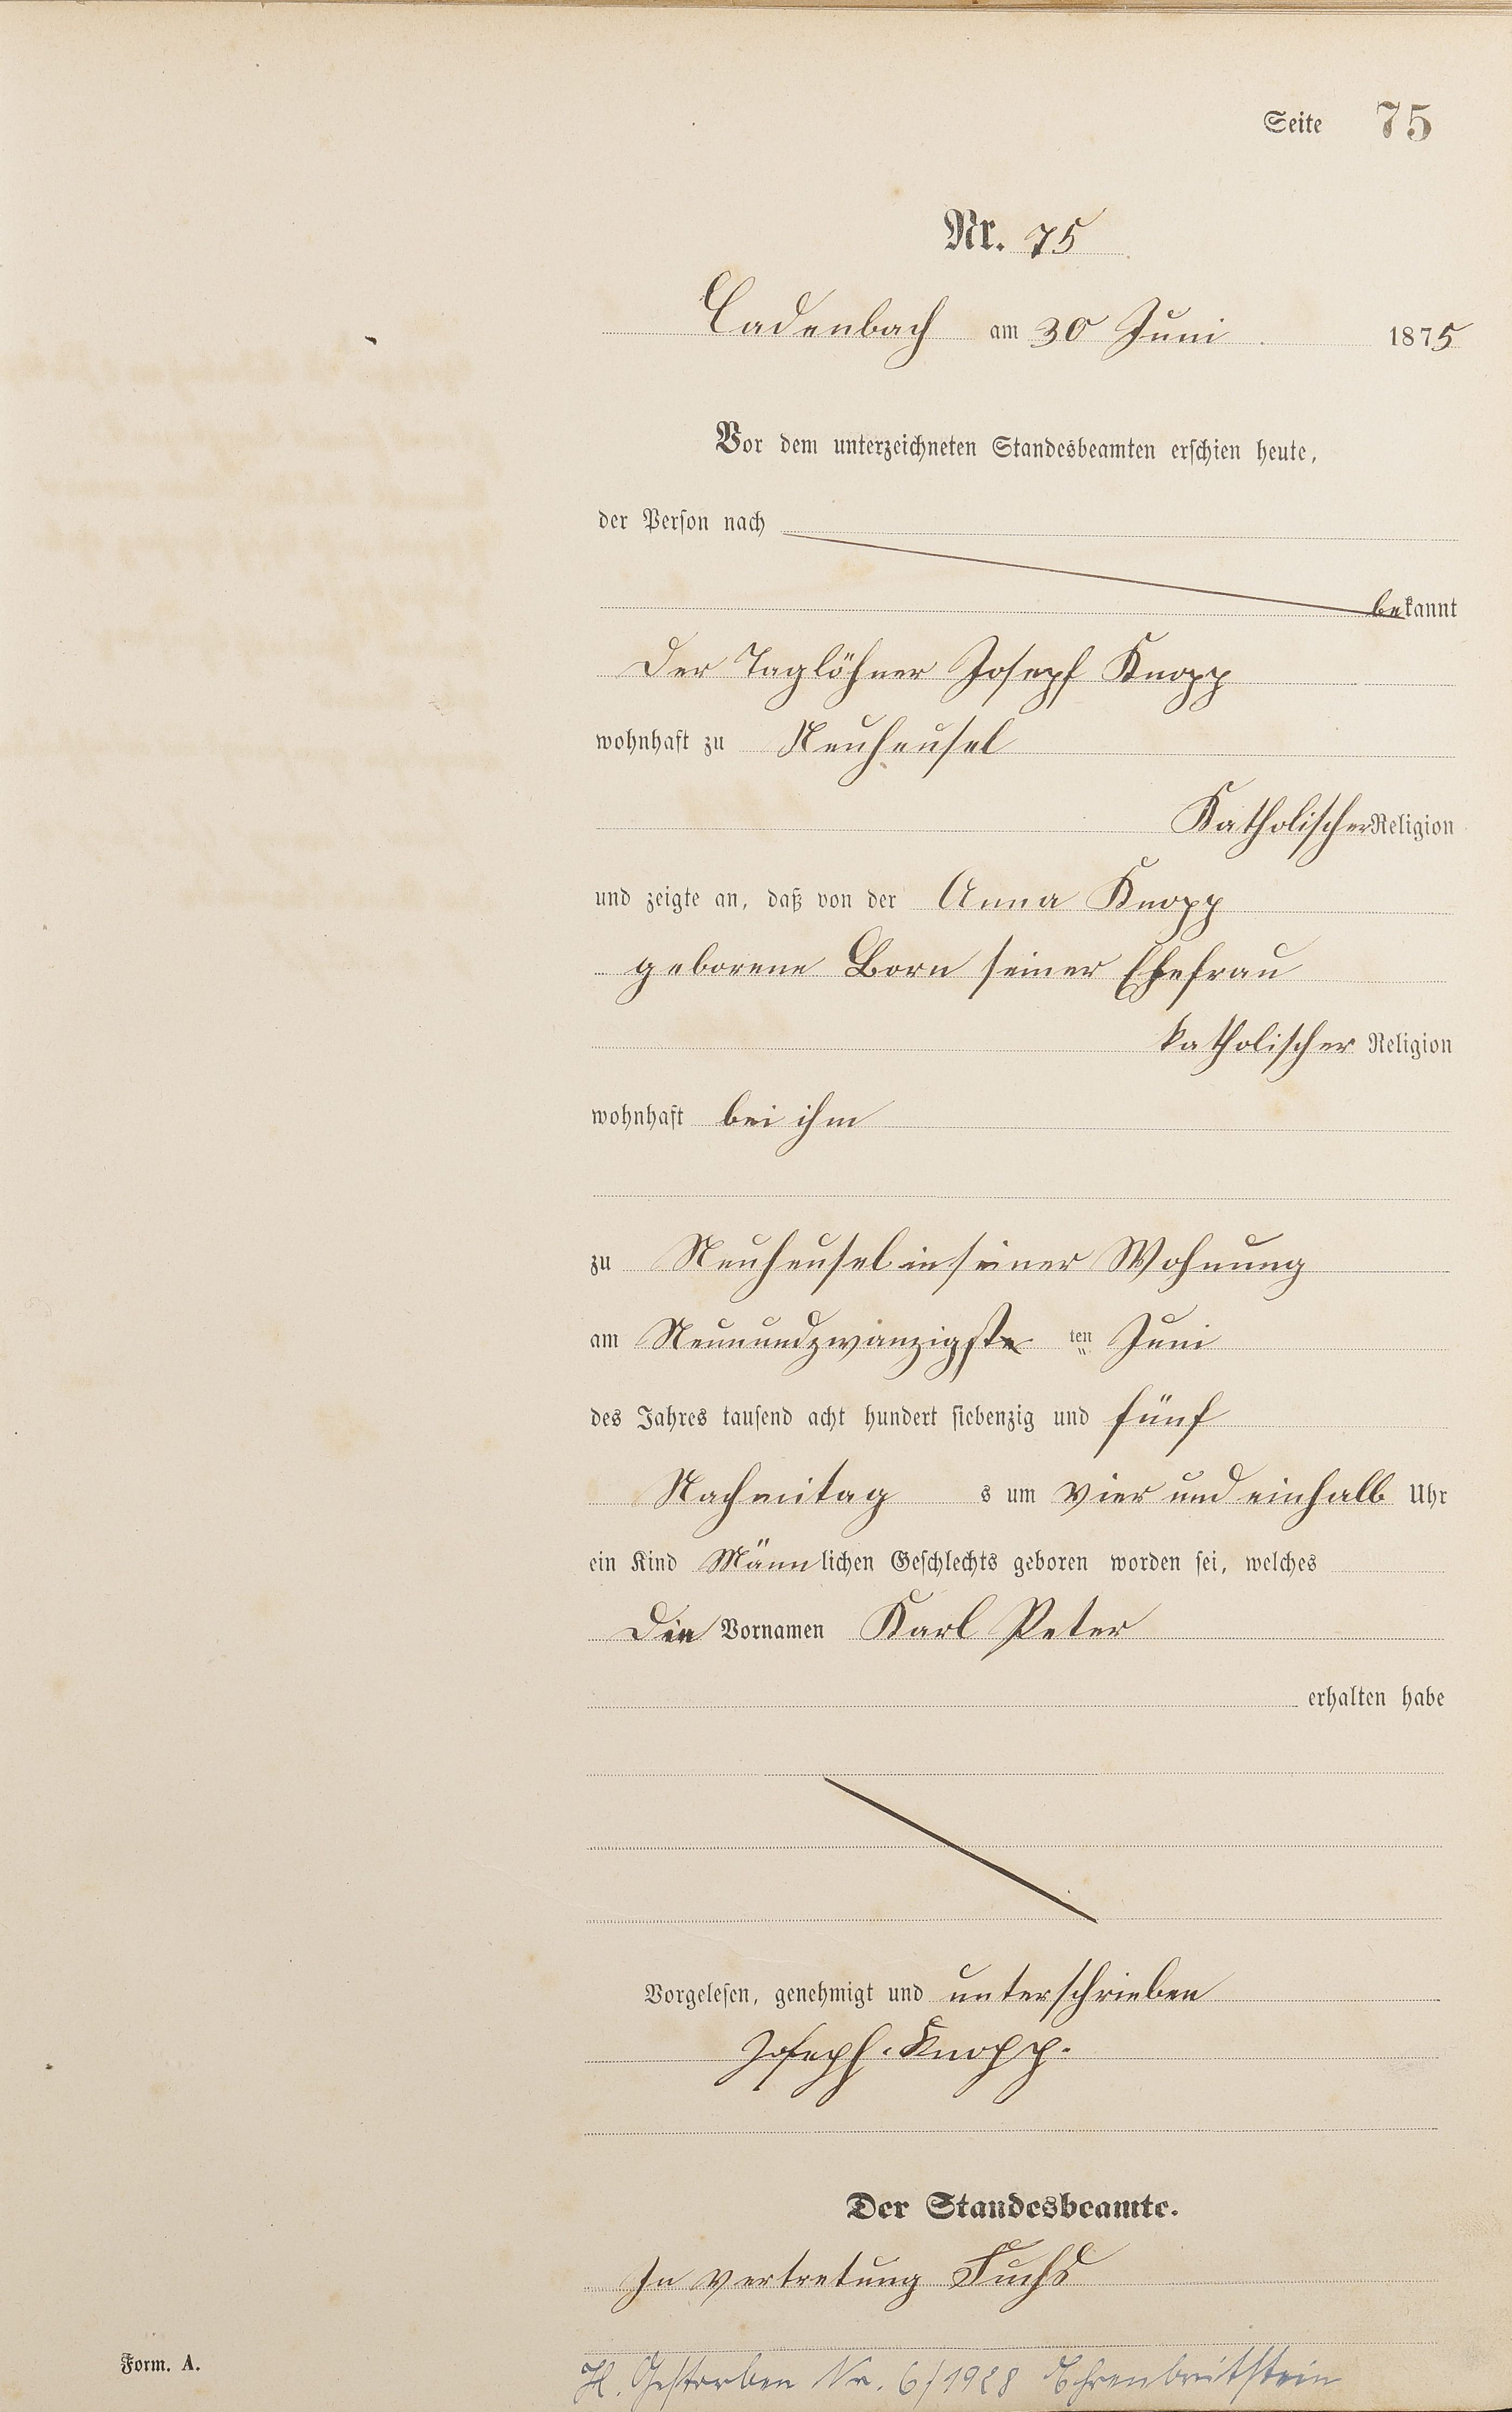 Seite 75
Nr. 75
Cadenbach am 30 Juni 1875
Vor dem unterzeichneten Standesbeamten erschien heute,
der Person nach
bekannt
Der Taglöhner Josepf Knopp
wohnhaft zu Neuheusel
Katholischer Religion
und zeigte an, daß von der Anna Knopp
geborene Born seiner Ehefrau
katholischer Religion
wohnhaft bei ihm
zu Neuheusel in seiner Wohnung
am Neunundzwanzigste ten Juni
des Jahres tausend acht hundert siebenzig und fünf
Nachmitag s um vier und einhalb Uhr
ein Kind Männlichen Geschlechts geboren worden sei, welches
Die Vornamen Karl Peter
erhalten habe
Vorgelesen, genehmigt und unterschrieben
Joseph. Knopp.
Der Standesbeamte.
In Vertretung Fuchs
Form. A.
H. Gestorben Nr. 6/1928 Ehrenbreitstein